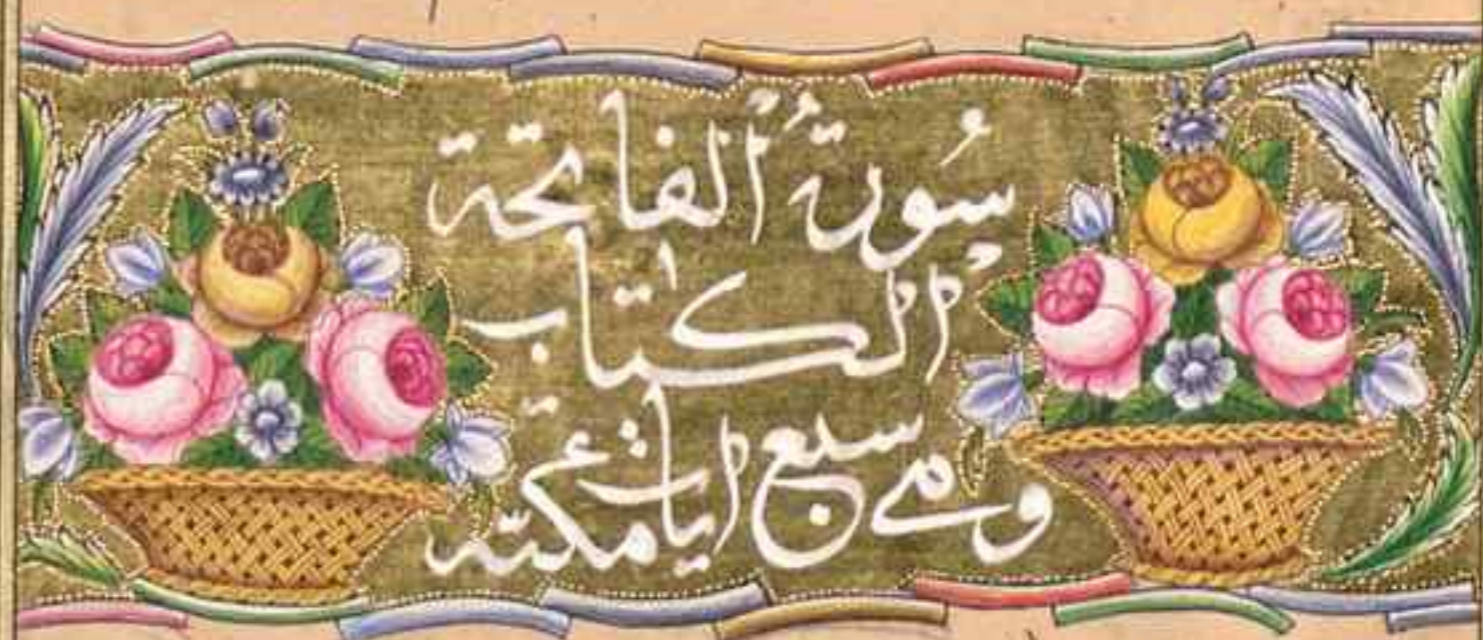 سُورة الفاتحة
الكتاب
وهي سبع ايات مكية